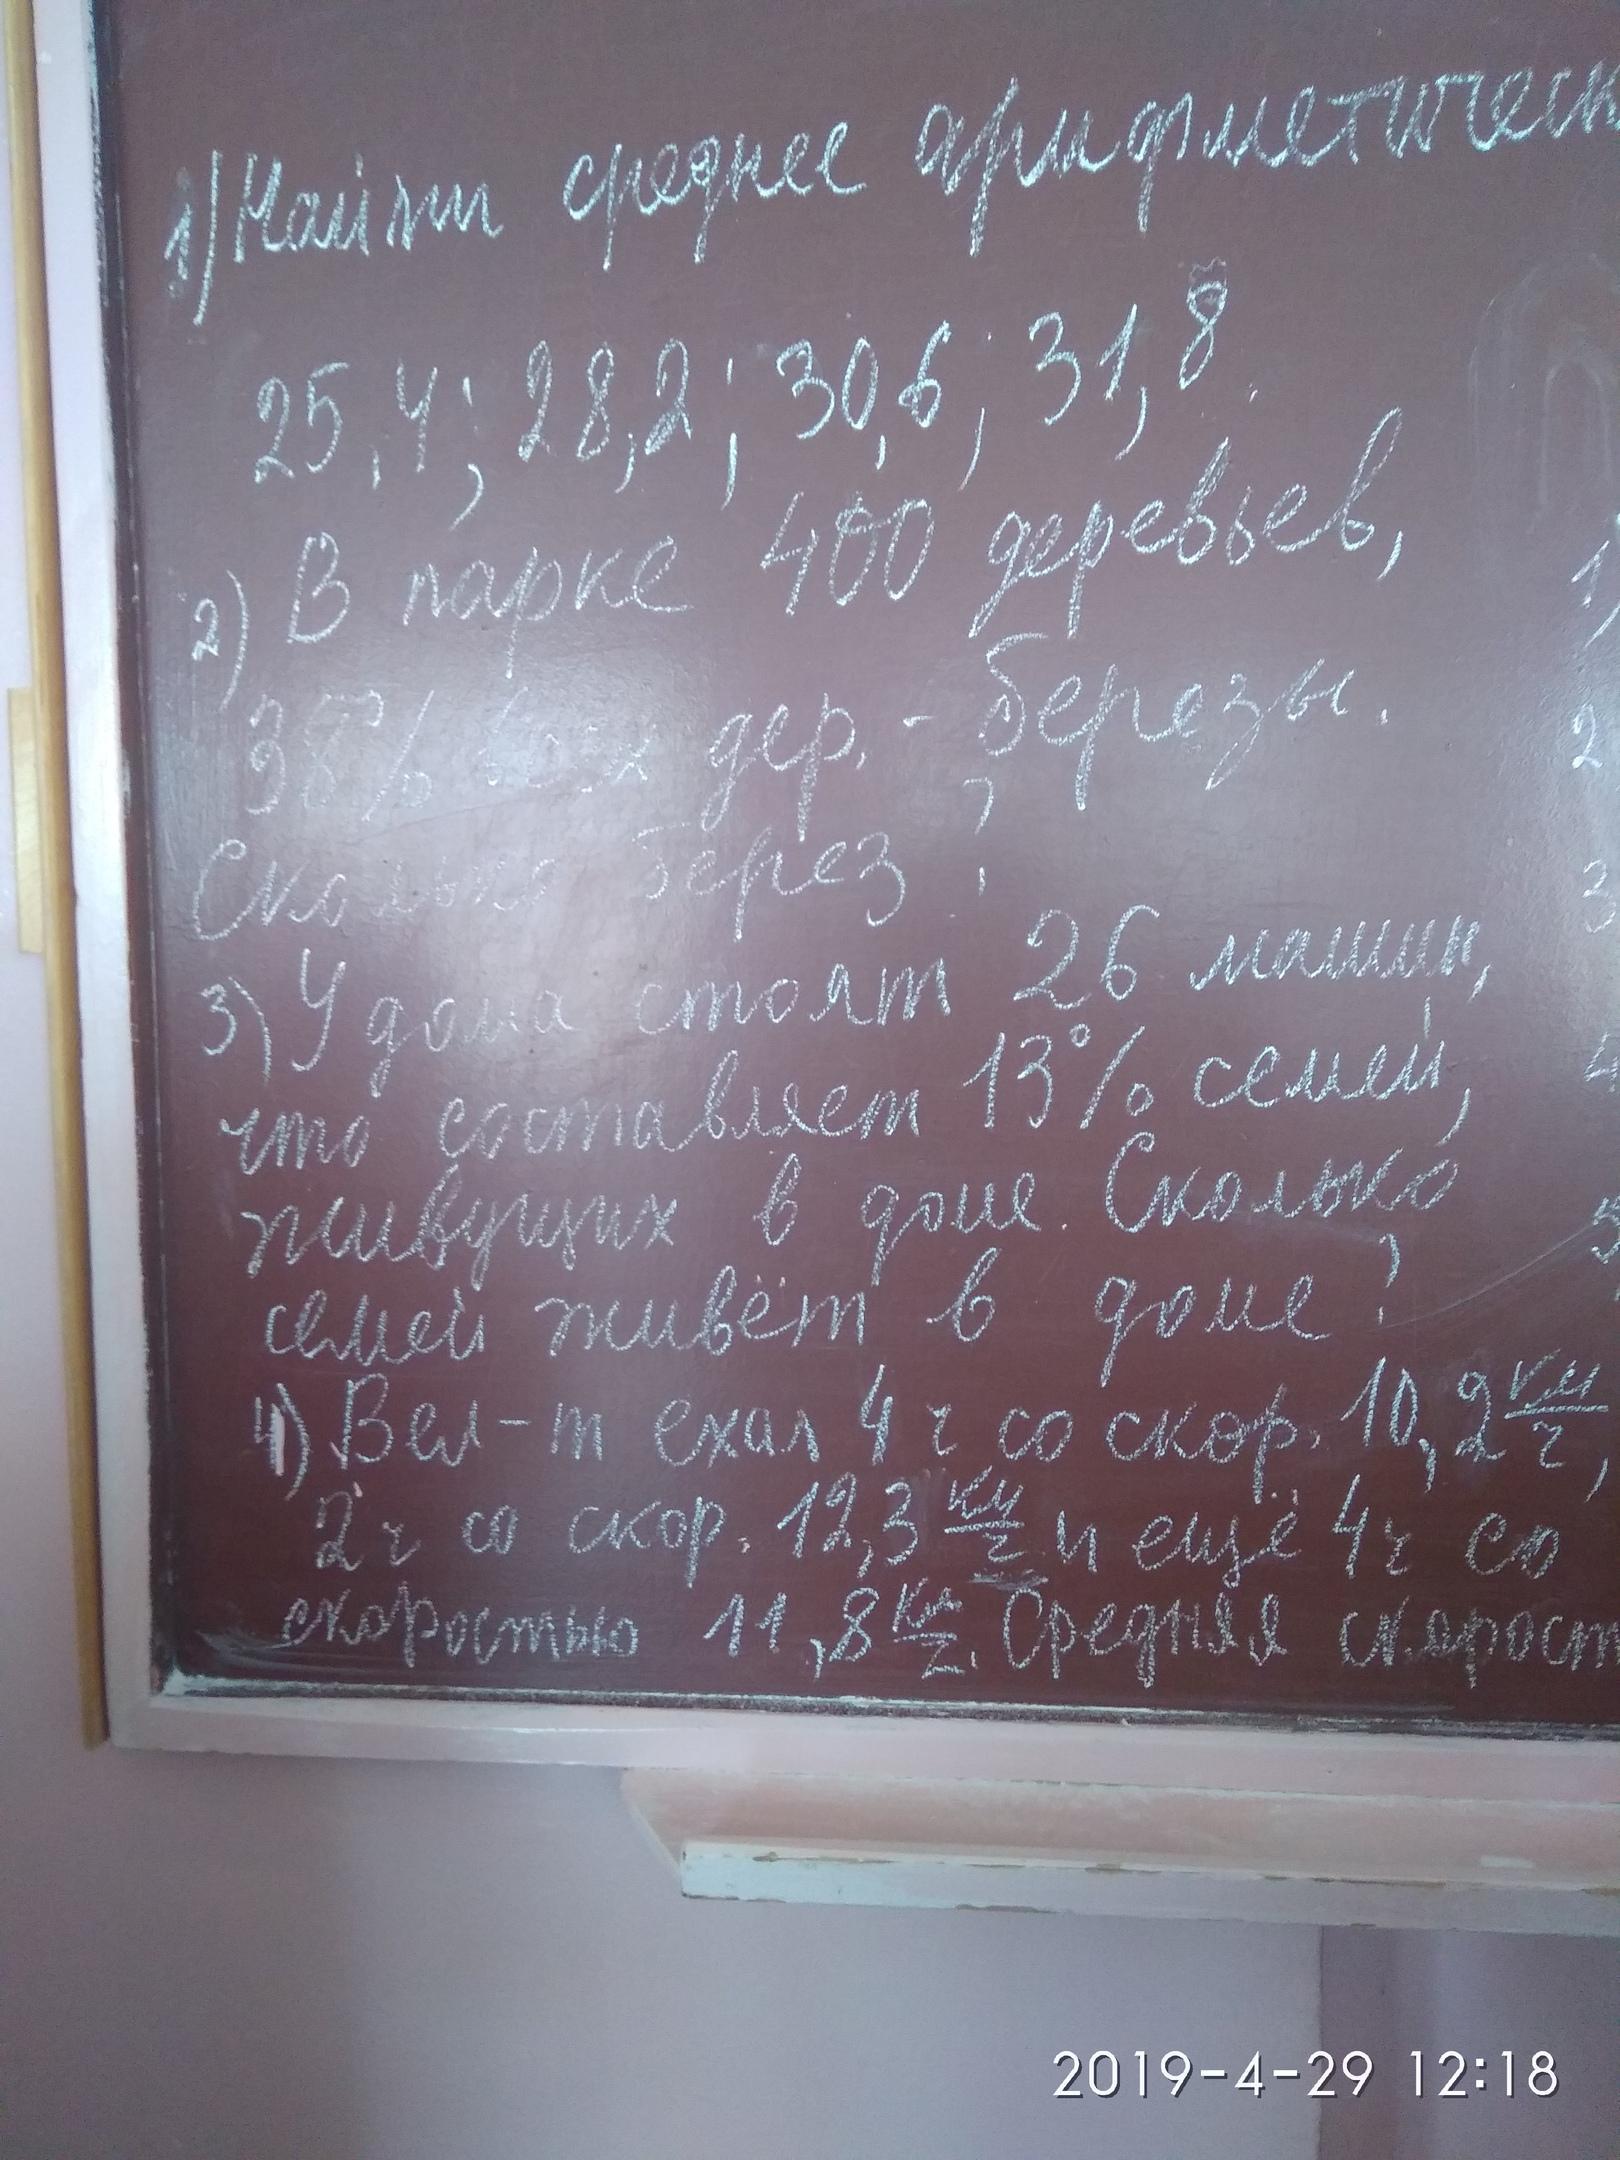 1) Найти среднее арифметическ
25,4; 28,2; 30,6; 31,8.
2) В парке 400 деревьев,
38% всех дер. - березы.
Сколько берез?
3) У дома стоят 26 машин,
что составляет 13% семей,
живущих в доме. Сколько
семей живёт в доме?
4) Вел-т ехал 4 ч со скор. 10,2 км/ч,
2 ч со скор. 12,3 км/ч и ещё 4 ч со
скоростью 11,8 км/ч. Средняя скорост
1)
2
3
4
5
2019-4-29 12:18